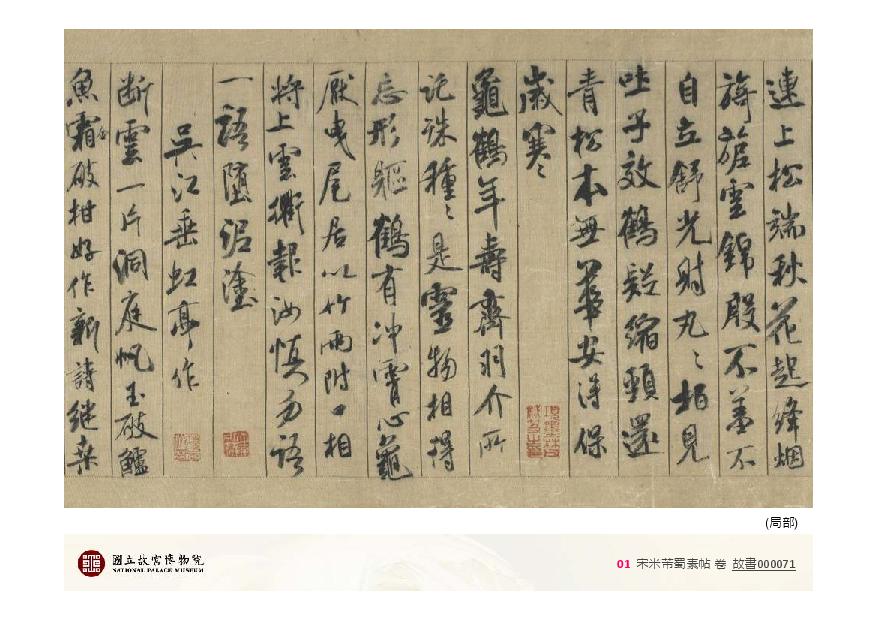 連上松端秋花起絳烟
旖旎雲錦殷不羞不
自立舒光射丸〻柏見
吐子效鶴疑縮頸還
青松本無華安得保
歲寒〻
龜鶴年壽齊羽介所
託殊種〻是靈物相得
忘形軀鶴有沖霄心龜
厭曳尾居以竹兩附口相
將上雲衢報汝慎勿語
一語墮泥塗
吳江垂虹亭作
断雲一片洞庭帆玉破鱸
魚霜破柑好作新詩継桑
(局部)
國立故宮博物院
NATIONAL PALACE MUSEUM
01 宋米芾蜀素帖 卷 故書000071